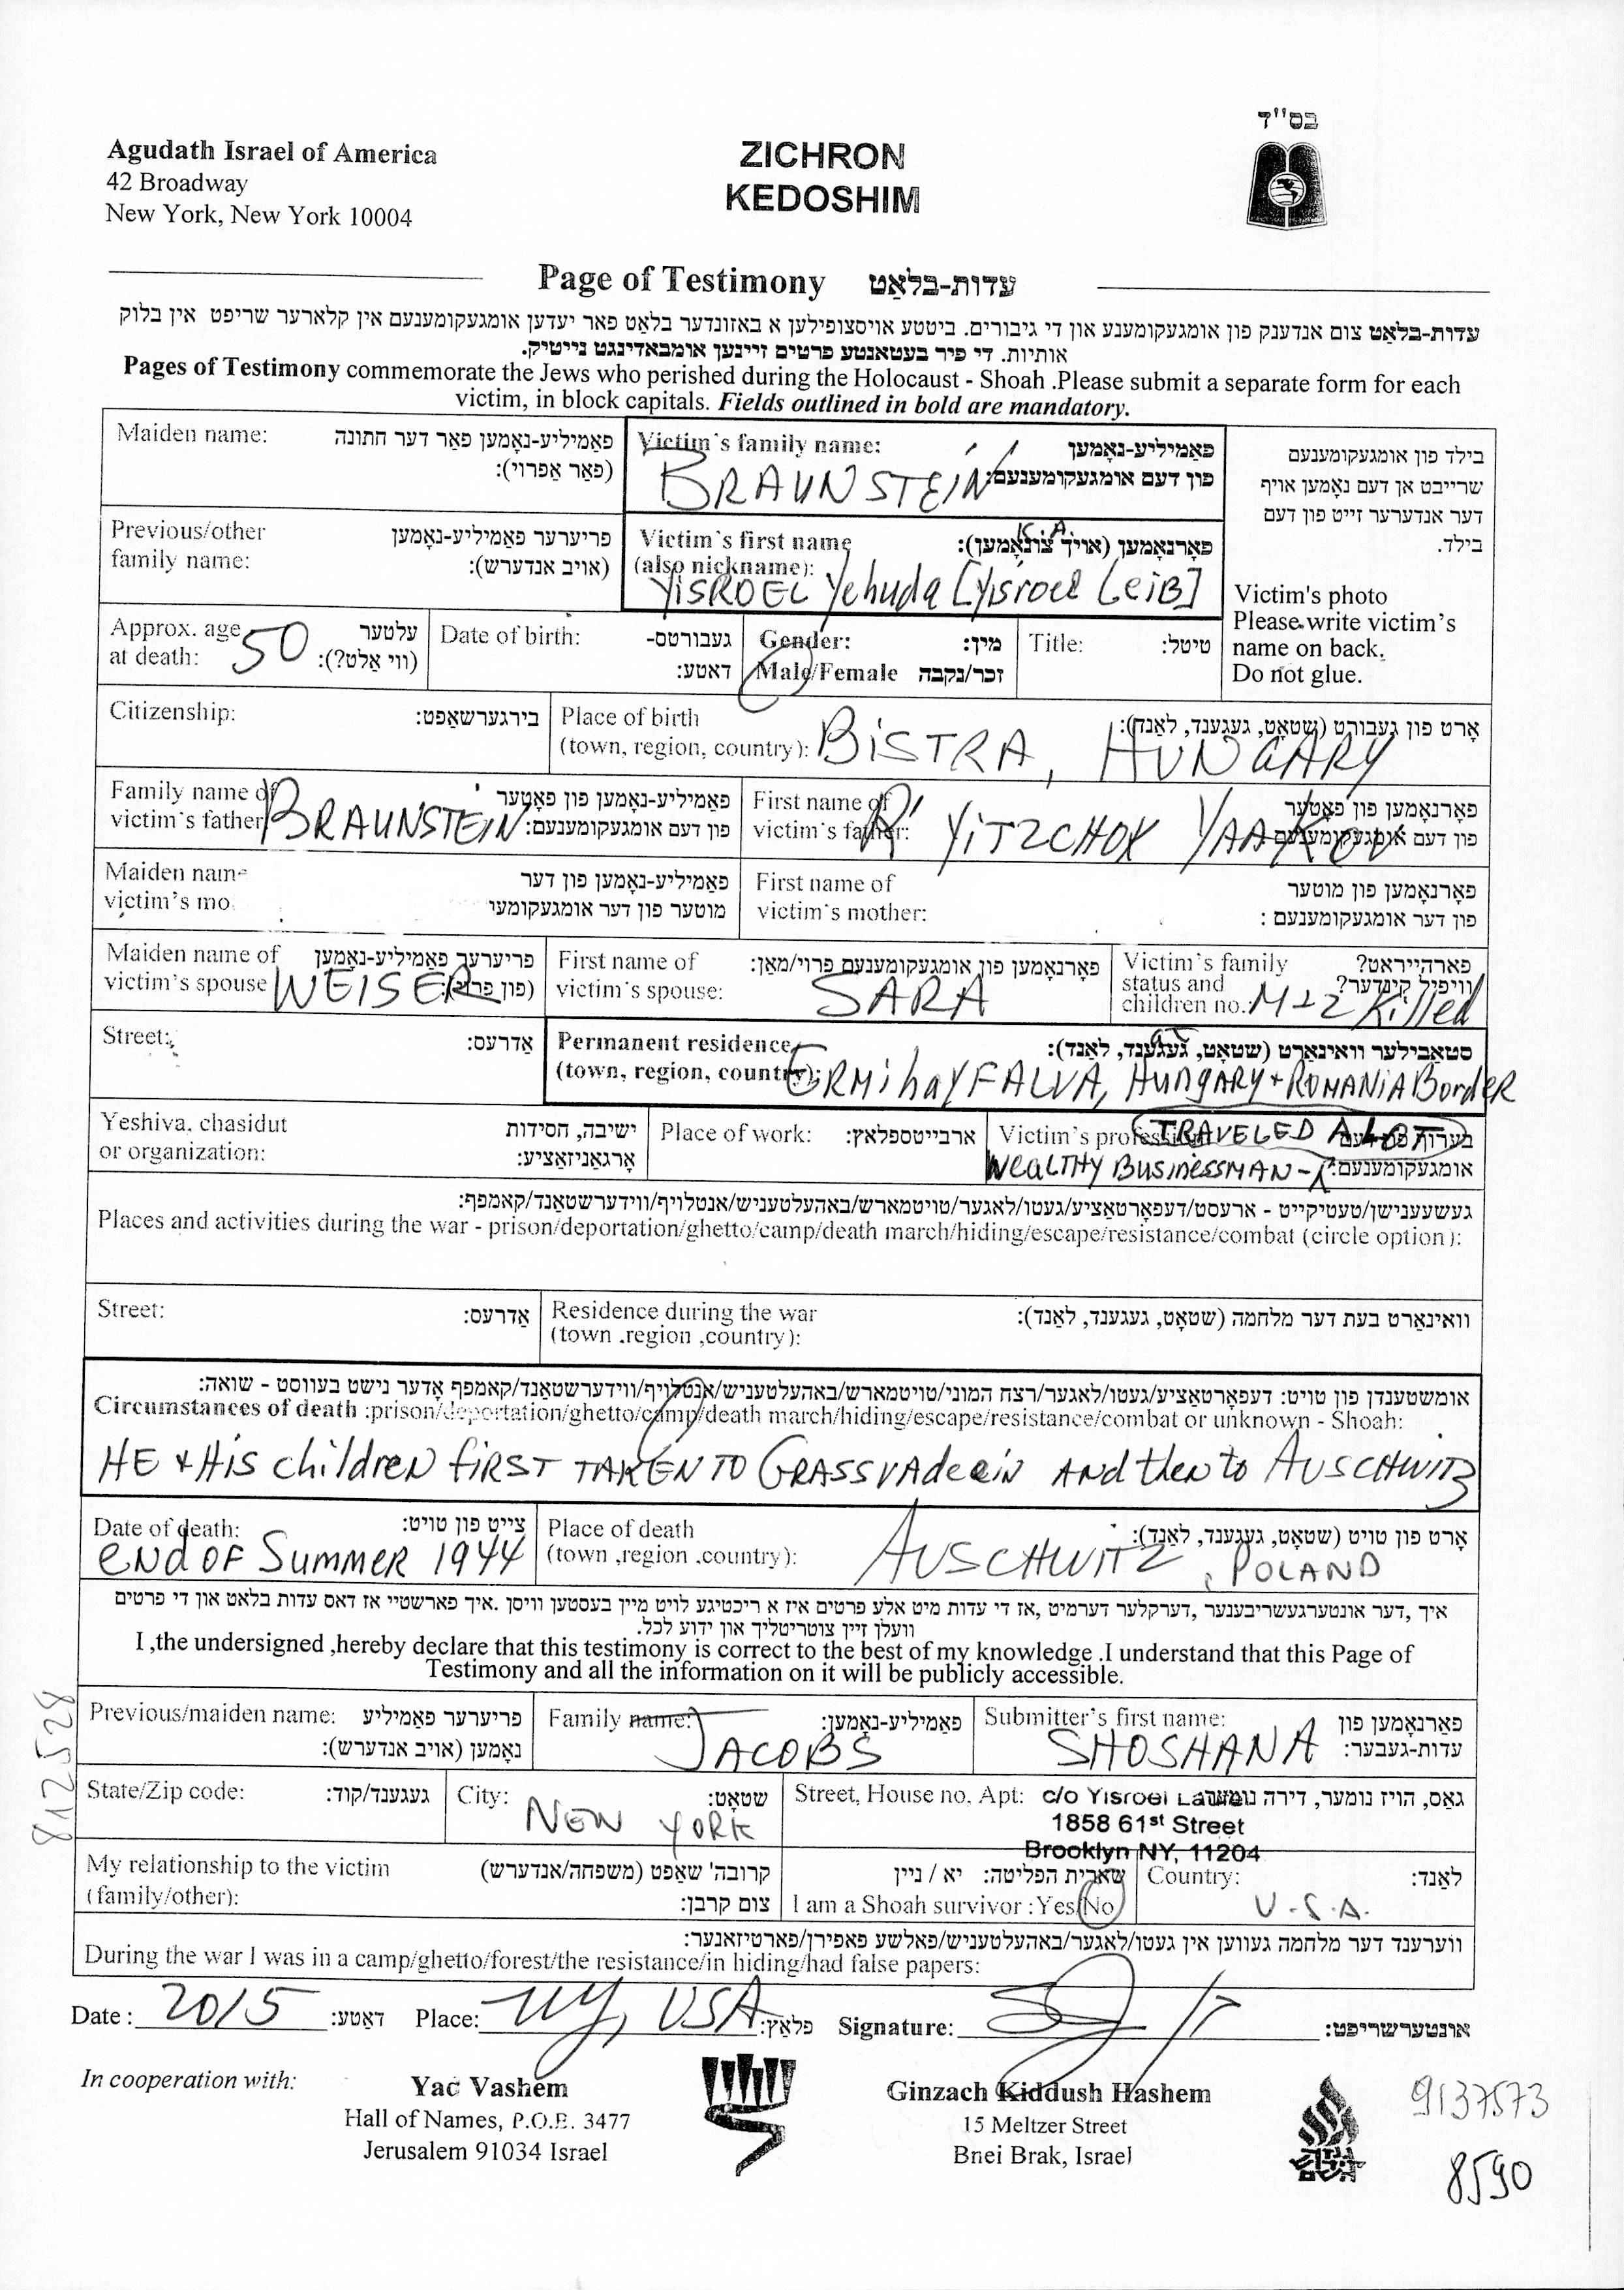 בס"ד
Agudath Israel of America
42 Broadway
New York, New York 10004
ZICHRON
KEDOSHIM
Page of Testimony עדות-בלאַט
עדות-בלאַט צום אנדענק פון אומגעקומענע און די גיבורים. ביטטע אויסצופילען א באזונדער בלאט פאר יעדען אומגעקומענעם אין קלארער שריפט אין בלוק
אותיות. די פיר בעטאנטע פרטים זיינען אומבאדינגט נייטיק.
Pages of Testimony commemorate the Jews who perished during the Holocaust - Shoah .Please submit a separate form for each
victim, in block capitals. Fields outlined in bold are mandatory.
Maiden name: פאַמיליע-נאָמען פאַר דער חתונה
(פאַר אַפרוי):
Victim's family name: פאַמיליע-נאָמען
פון דעם אומגעקומענעם:
BRAUNSTEIN
בילד פון אומגעקומענעם
שרייבט אן דעם נאָמען אויף
דער אנדערער זייט פון דעם
בילד.
Victim's photo
Please write victim's
name on back.
Do not glue.
Previous/other פריערער פאַמיליע-נאָמען
family name: (אויב אנדערש):
Victim's first name פאָרנאָמען (אויך צונאָמען):
(also nickname):
K.A.
YISROEL Yehuda [Yisroel LEIB]
Approx. age עלטער
at death: 50 (ווי אַלט?):
Date of birth: געבורטס-
דאטע:
Gender: מין:
Male/Female זכר/נקבה
Title: טיטל:
Citizenship: בירגערשאַפט:
Place of birth אָרט פון געבורט (שטאָט, געגענד, לאַנד):
(town, region, country): BISTRA, HUNGARY
Family name of פאַמיליע-נאָמען פון פאָטער
victim's father BRAUNSTEIN פון דעם אומגעקומענעם:
First name of פאָרנאָמען פון פאָטער
victim's father: R' YITZCHOK YAAKOV פון דעם אומגעקומענעם
Maiden name פאַמיליע-נאָמען פון דער
victim's mo מוטער פון דער אומגעקומעי
First name of פאָרנאָמען פון מוטער
victim's mother: פון דער אומגעקומענעם :
Maiden name of פריערער פאַמיליע-נאָמען
victim's spouse WEISER
First name of פאָרנאָמען פון אומגעקומענעם פרוי/מאַן:
victim's spouse: SARA
Victim's family פארהייראט?
status and וויפיל קינדער?
children no.: M+2 Killed
Street: אַדרעס:
Permanent residence סטאַבילער וואינאָרט (שטאָט, געגענד, לאַנד):
(town, region, country): ERMihaYFALVA, HUngARY + ROMANIA BordER
Yeshiva, chasidut ישיבה, חסידות
or organization: אָרגאַניזאַציע:
Place of work: ארבייטספלאַץ:
Victim's profession TRAVELED A LOT
WEALTHY BUSINESSMAN אומגעקומענעם:
געשעענישן/טעטיקייט - ארעסט/דעפּאָרטאַציע/געטו/לאַגער/טויטמארש/באהעלטעניש/אנטלויף/ווידערשטאַנד/קאמפף:
Places and activities during the war - prison/deportation/ghetto/camp/death march/hiding/escape/resistance/combat (circle option):
Street: אַדרעס:
Residence during the war וואינאַרט בעת דער מלחמה (שטאָט, געגענד, לאַנד):
(town ,region ,country):
אומשטענדן פון טויט: דעפּאָרטאַציע/געטו/לאגער/רצח המוני/טויטמארש/באהעלטעניש/אנטלויף/ווידערשטאַנד/קאמפף אָדער נישט בעווסט - שואה:
Circumstances of death :prison/deportation/ghetto/camp/death march/hiding/escape/resistance/combat or unknown - Shoah:
HE + HIS children FIRST TAKEN TO GRASSVAdeein ANd then to AUSCHWITZ
Date of death: צייט פון טויט:
end OF Summer 1944
Place of death אָרט פון טויט (שטאָט, געגענד, לאַנד):
(town ,region ,country): AUSCHWITZ, POLAND
איך ,דער אונטערגעשריבענער ,דערקלער דערמיט ,אז די עדות מיט אלע פרטים איז א ריכטיגע לויט מיין בעסטען וויסן .איך פארשטיי אז דאס עדות בלאט און די פרטים
וועלן זיין צוטריטליך און ידוע לכל.
I ,the undersigned ,hereby declare that this testimony is correct to the best of my knowledge .I understand that this Page of
Testimony and all the information on it will be publicly accessible.
Previous/maiden name: פריערער פאַמיליע
נאָמען (אויב אנדערש):
Family name: פאַמיליע-נאָמען:
JACOBS
Submitter's first name: פאָרנאָמען פון
SHOSHANA עדות-געבער:
State/Zip code: געגענד/קוד:
City: שטאָט:
NEW YORK
Street, House no. Apt: גאַס, הויז נומער, דירה נומער
c/o Yisroel
1858 61st Street
Brooklyn NY, 11204
My relationship to the victim קרובה' שאַפט (משפחה/אנדערש)
(family/other): צום קרבן:
שארית הפליטה: יא / ניין
I am a Shoah survivor :Yes/No
Country: לאַנד:
U.S.A.
ווערענד דער מלחמה געווען אין געטו/לאַגער/באהעלטעניש/פאלשע פאפירן/פארטיזאנער:
During the war I was in a camp/ghetto/forest/the resistance/in hiding/had false papers:
Date : 2015 דאַטע: Place: NY, USA פלאַץ: Signature: אונטערשריפט:
In cooperation with:
Yad Vashem
Hall of Names, P.O.B. 3477
Jerusalem 91034 Israel
Ginzach Kiddush Hashem
15 Meltzer Street
Bnei Brak, Israel
9137573
8590
812528